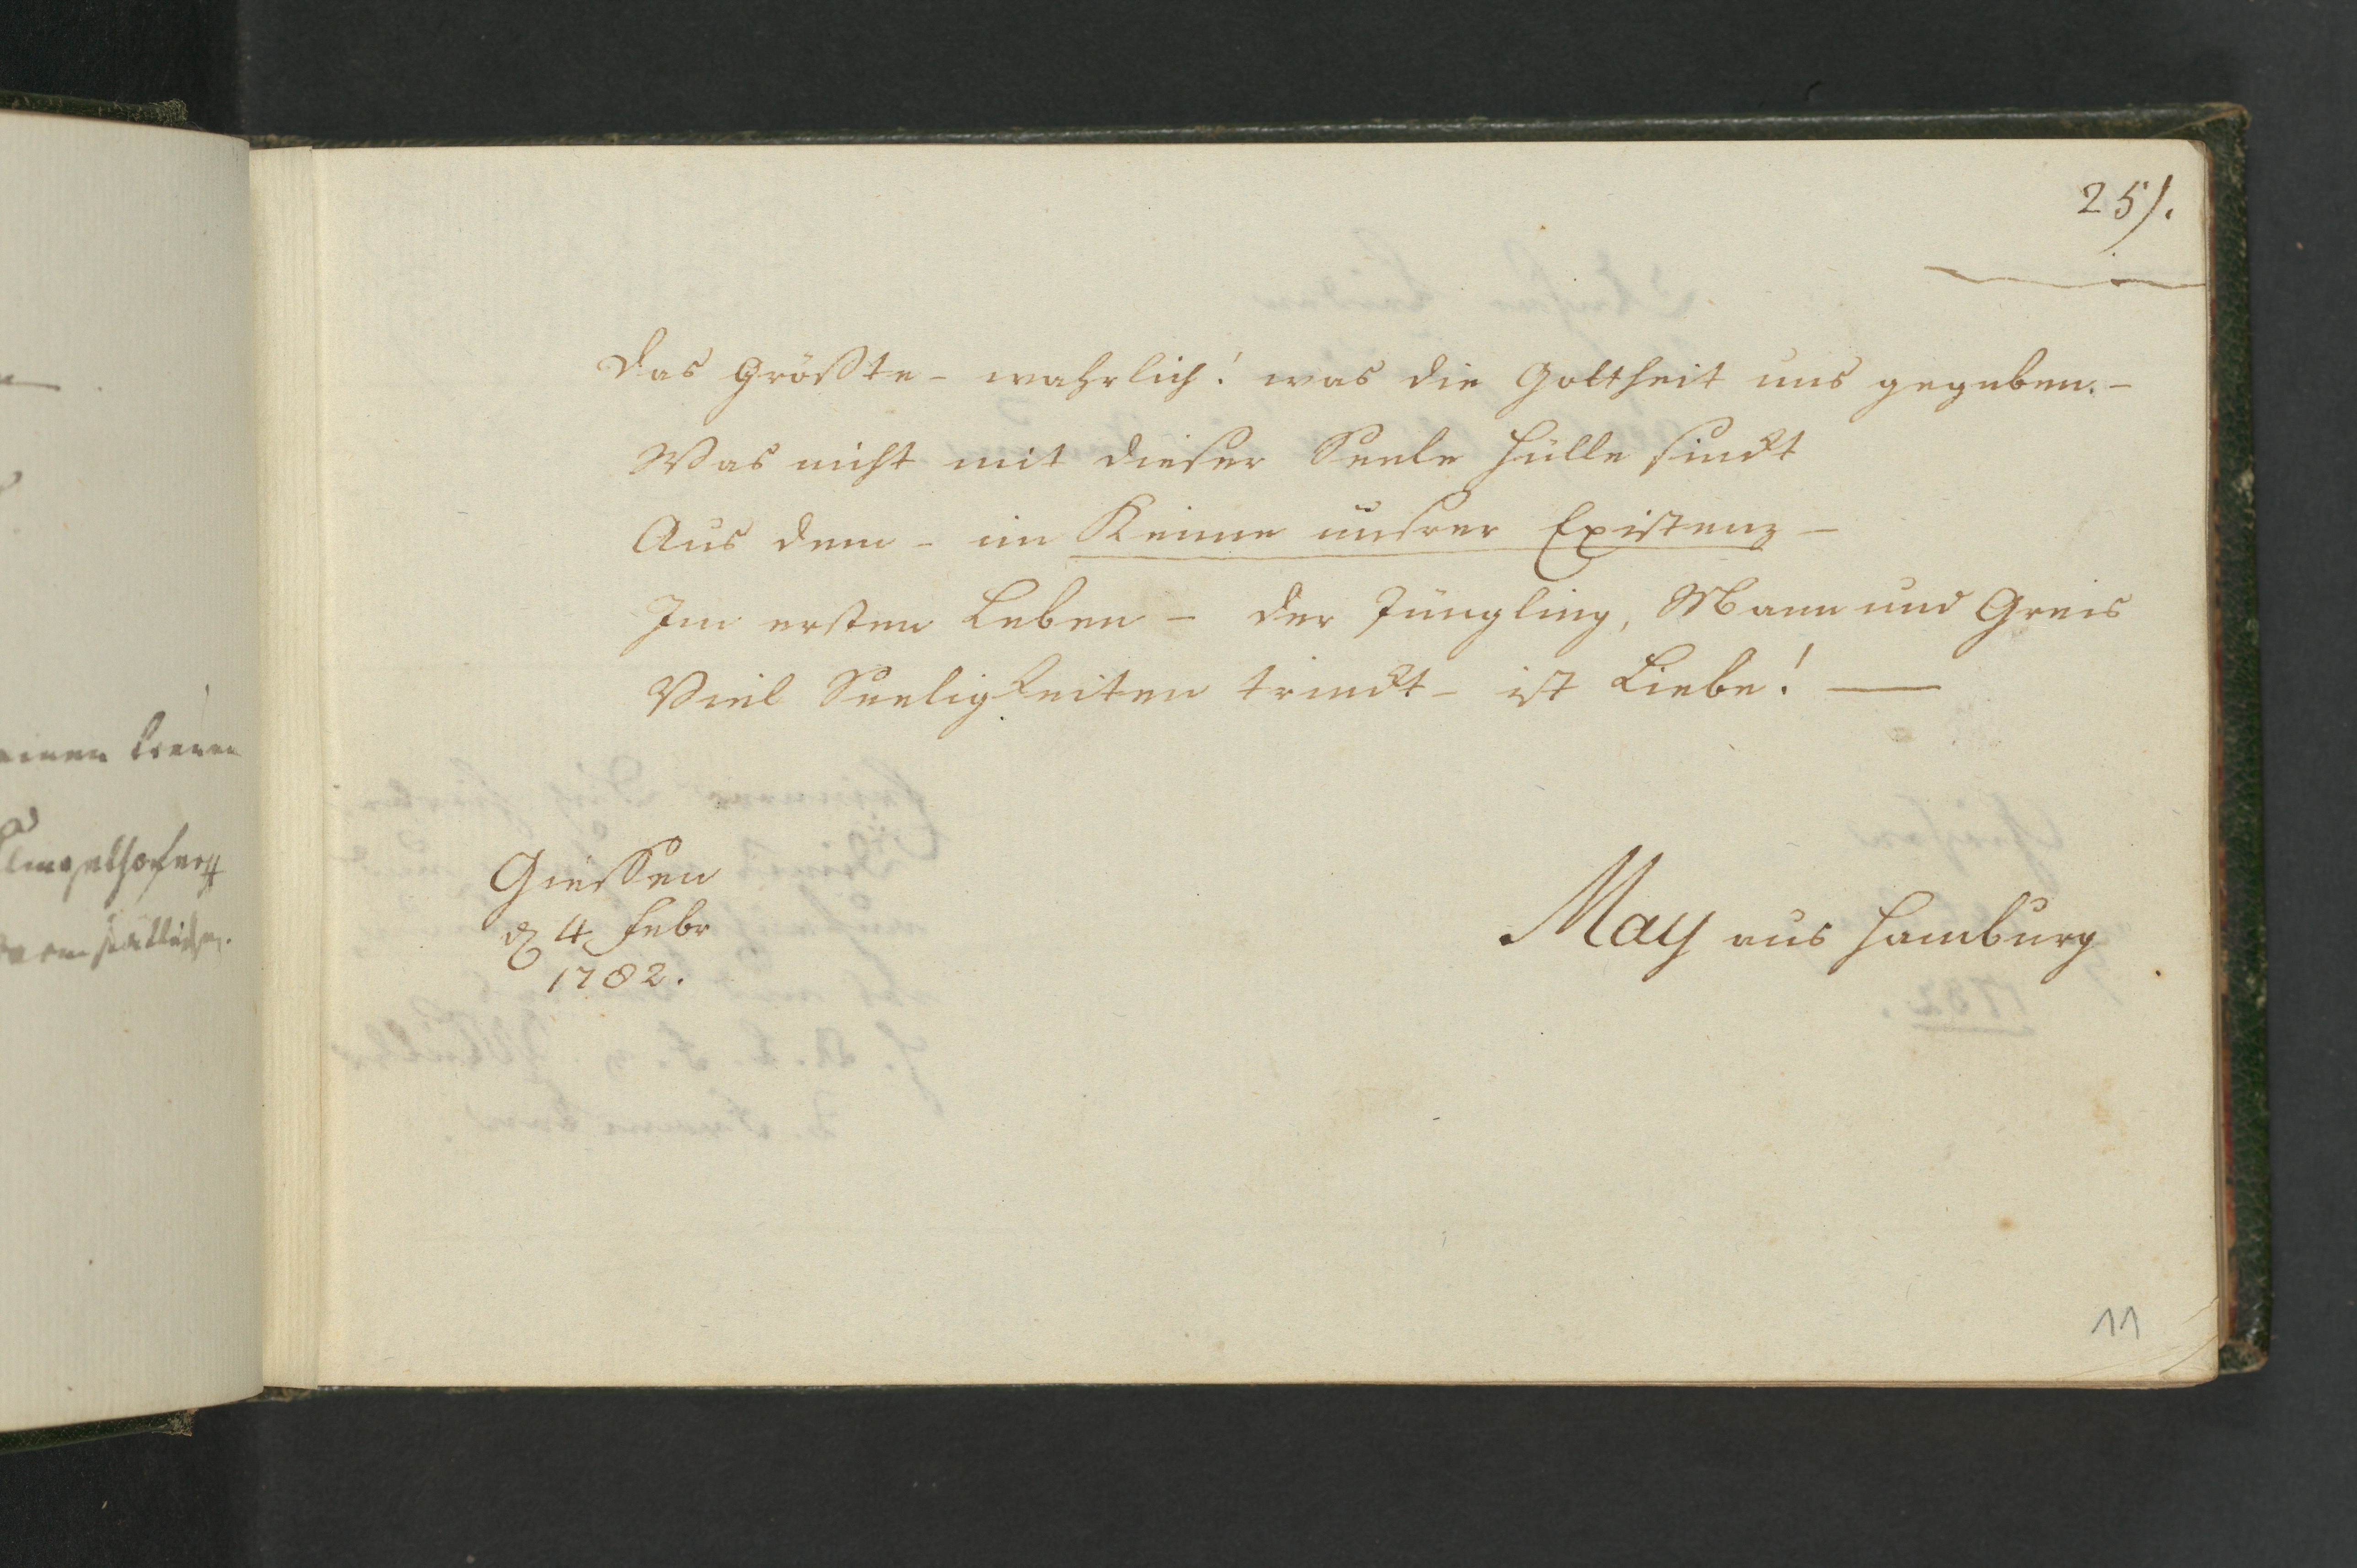 251.
Das Größte - wahrlich! was die Gottheit uns gegeben. -
Was nicht mit dieser Seele Hülle sinckt
Aus dem - im Keime unsrer Existenz -
Im ersten Leben - der Jüngling, Mann und Greis
Viel Seeligkeiten trinckt - ist Liebe! —
Giessen
d 4 Febr
1782.
May aus Hamburg
11